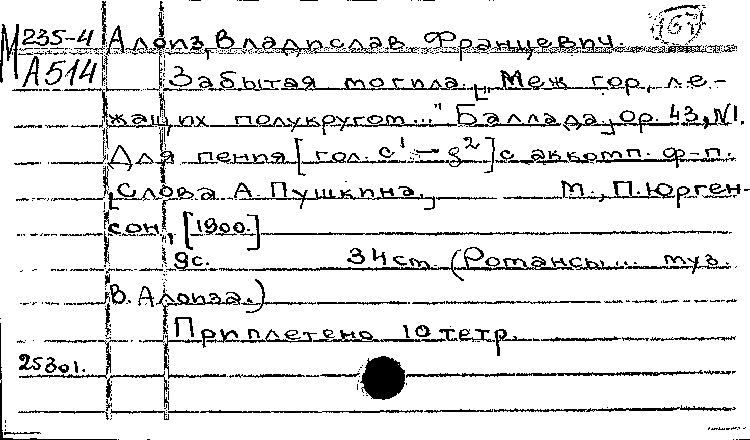 М 235-4 Алоиз, Владислав Францевич. 67
А 514 Забытая могила. [„Меж гор, ле-
жащих полукругом..." Баллада], ор. 43, №1.
Для пения [гол. c¹ – g²] с аккомп. ф-п.
[Слова А. Пушкина.] М., П. Юрген-
сон, [1900.]
9с. 34 см. (Романсы... муз.
В. Алоиза.)
Приплетено 10 тетр.
25301.